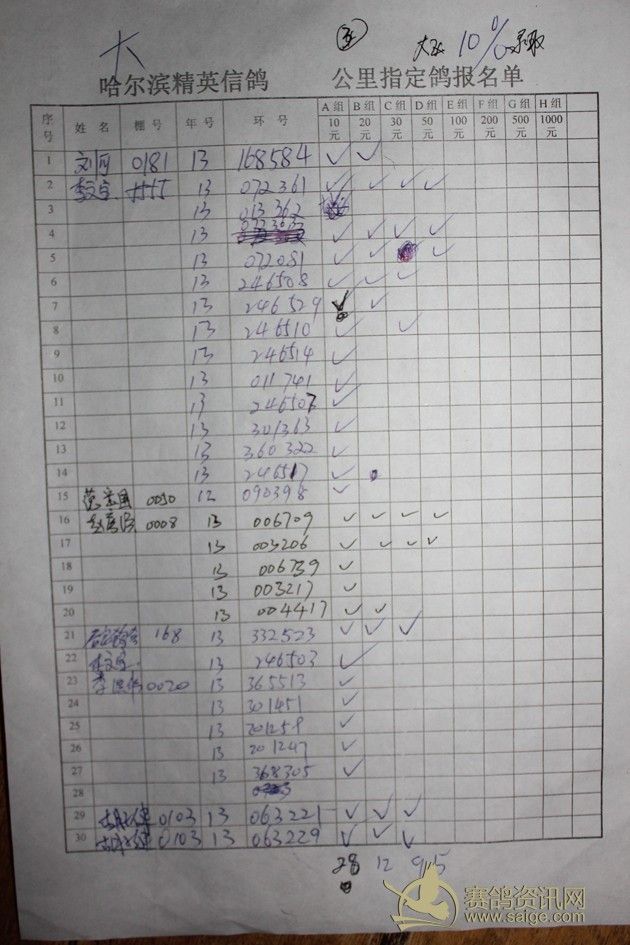 大 10% 录取
哈尔滨精英信鸽 公里指定鸽报名单
序号 姓名 棚号 年号 环号 A组 B组 C组 D组 E组 F组 G组 H组
10元 20元 30元 50元 100元 200元 500元 1000元
1 0181 13 168584 ✓ ✓
2 13 072361 ✓ ✓ ✓ ✓
3 13 013362
4 13 ✓ ✓ ✓ ✓
5 13 072081 ✓ ✓ ✓
6 13 246508 ✓ ✓ ✓
7 13 246529 ✓ ✓
8 13 246510 ✓ ✓
9 13 246514 ✓
10 13 011741 ✓
11 13 246507 ✓
12 13 301363 ✓
13 13 360322 ✓
14 13 246517 ✓
15 0050 12 090398 ✓
16 0008 13 006709 ✓ ✓ ✓ ✓
17 13 003206 ✓ ✓ ✓ ✓
18 13 006739 ✓
19 13 003217 ✓
20 13 004417 ✓ ✓
21 168 13 332523 ✓ ✓ ✓
22 13 246503 ✓
23 0020 13 365513 ✓
24 13 301451 ✓
25 13 201258 ✓
26 13 201247 ✓
27 13 368305 ✓
28
29 0103 13 063221 ✓ ✓ ✓
30 0103 13 063229 ✓ ✓ ✓
28 12 9 5
赛鸽资讯网
www.saige.com